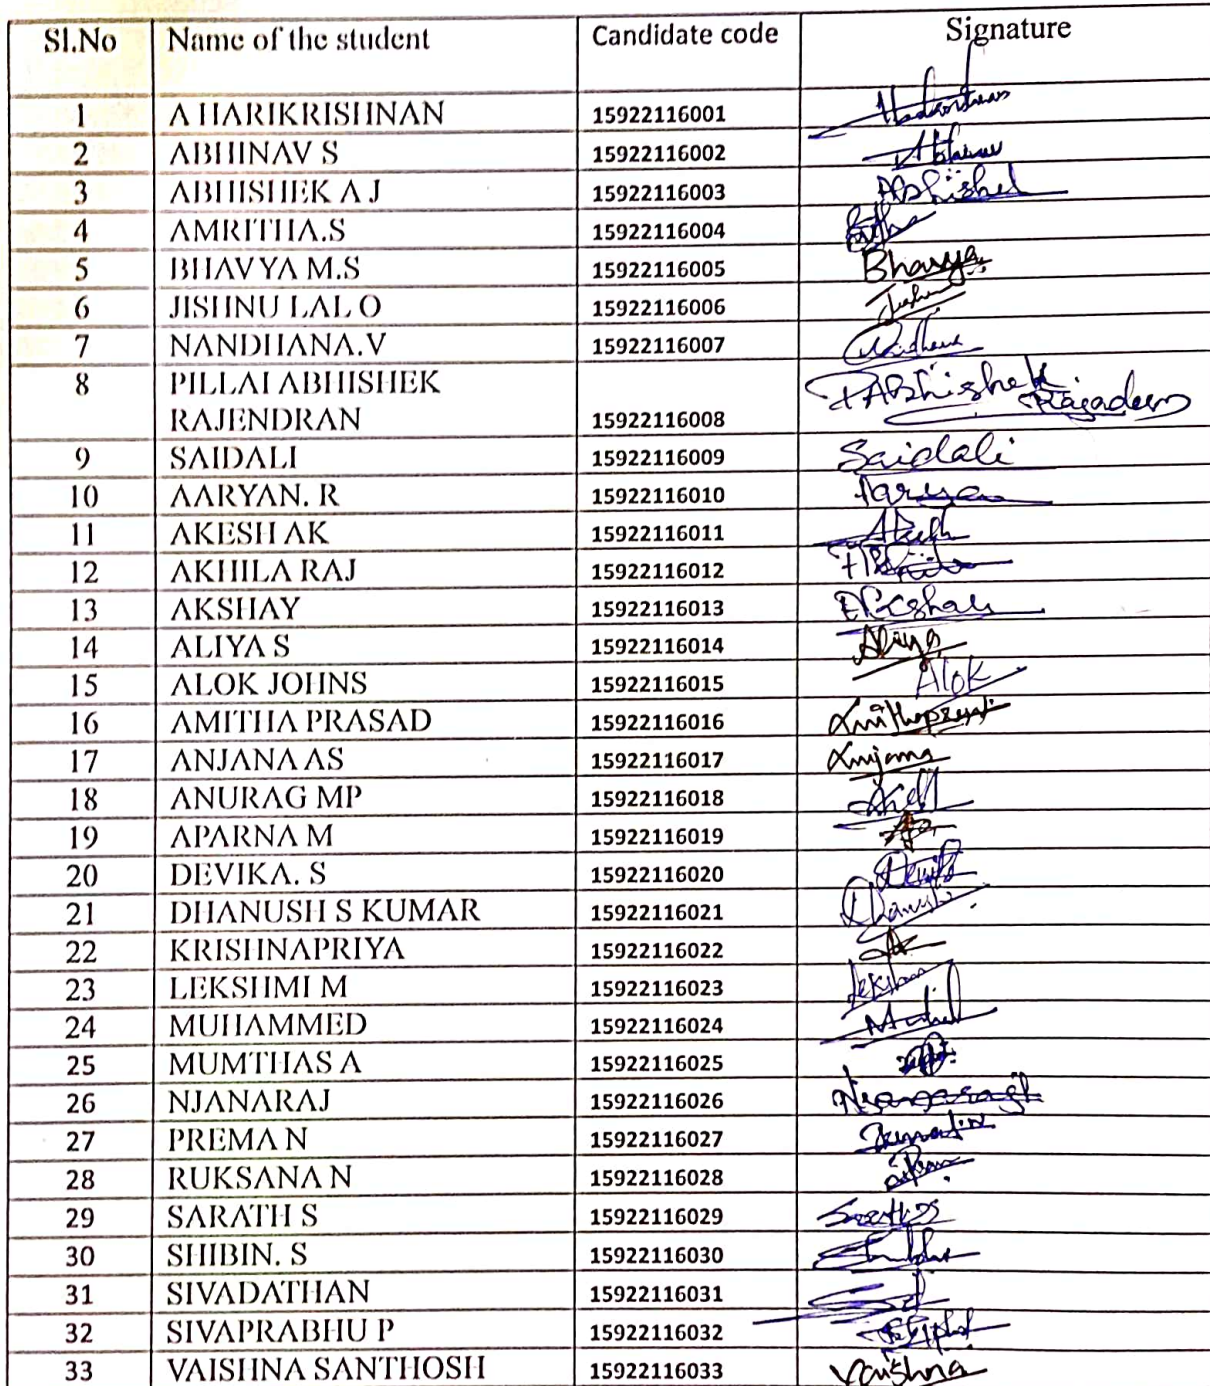 Sl.No Name of the student Candidate code Signature
1 A HARIKRISHNAN 15922116001
2 ABHINAV S 15922116002 Abhinav
3 ABHISHEK A J 15922116003 Abhishek
4 AMRITHA.S 15922116004
5 BHAVYA M.S 15922116005 Bhavya
6 JISHNU LAL O 15922116006
7 NANDHANA.V 15922116007
8 PILLAI ABHISHEK P Abhishek
RAJENDRAN 15922116008
9 SAIDALI 15922116009 Saidali
10 AARYAN. R 15922116010 Aaryan
11 AKESH AK 15922116011 Akesh
12 AKHILA RAJ 15922116012
13 AKSHAY 15922116013 Akshay
14 ALIYA S 15922116014 Aliya
15 ALOK JOHNS 15922116015 Alok
16 AMITHA PRASAD 15922116016
17 ANJANA AS 15922116017 Anjana
18 ANURAG MP 15922116018
19 APARNA M 15922116019
20 DEVIKA. S 15922116020
21 DHANUSH S KUMAR 15922116021
22 KRISHNAPRIYA 15922116022
23 LEKSHMI M 15922116023
24 MUHAMMED 15922116024
25 MUMTHAS A 15922116025
26 NJANARAJ 15922116026
27 PREMA N 15922116027
28 RUKSANA N 15922116028
29 SARATH S 15922116029
30 SHIBIN. S 15922116030
31 SIVADATHAN 15922116031
32 SIVAPRABHU P 15922116032
33 VAISHNA SANTHOSH 15922116033 Vaishna